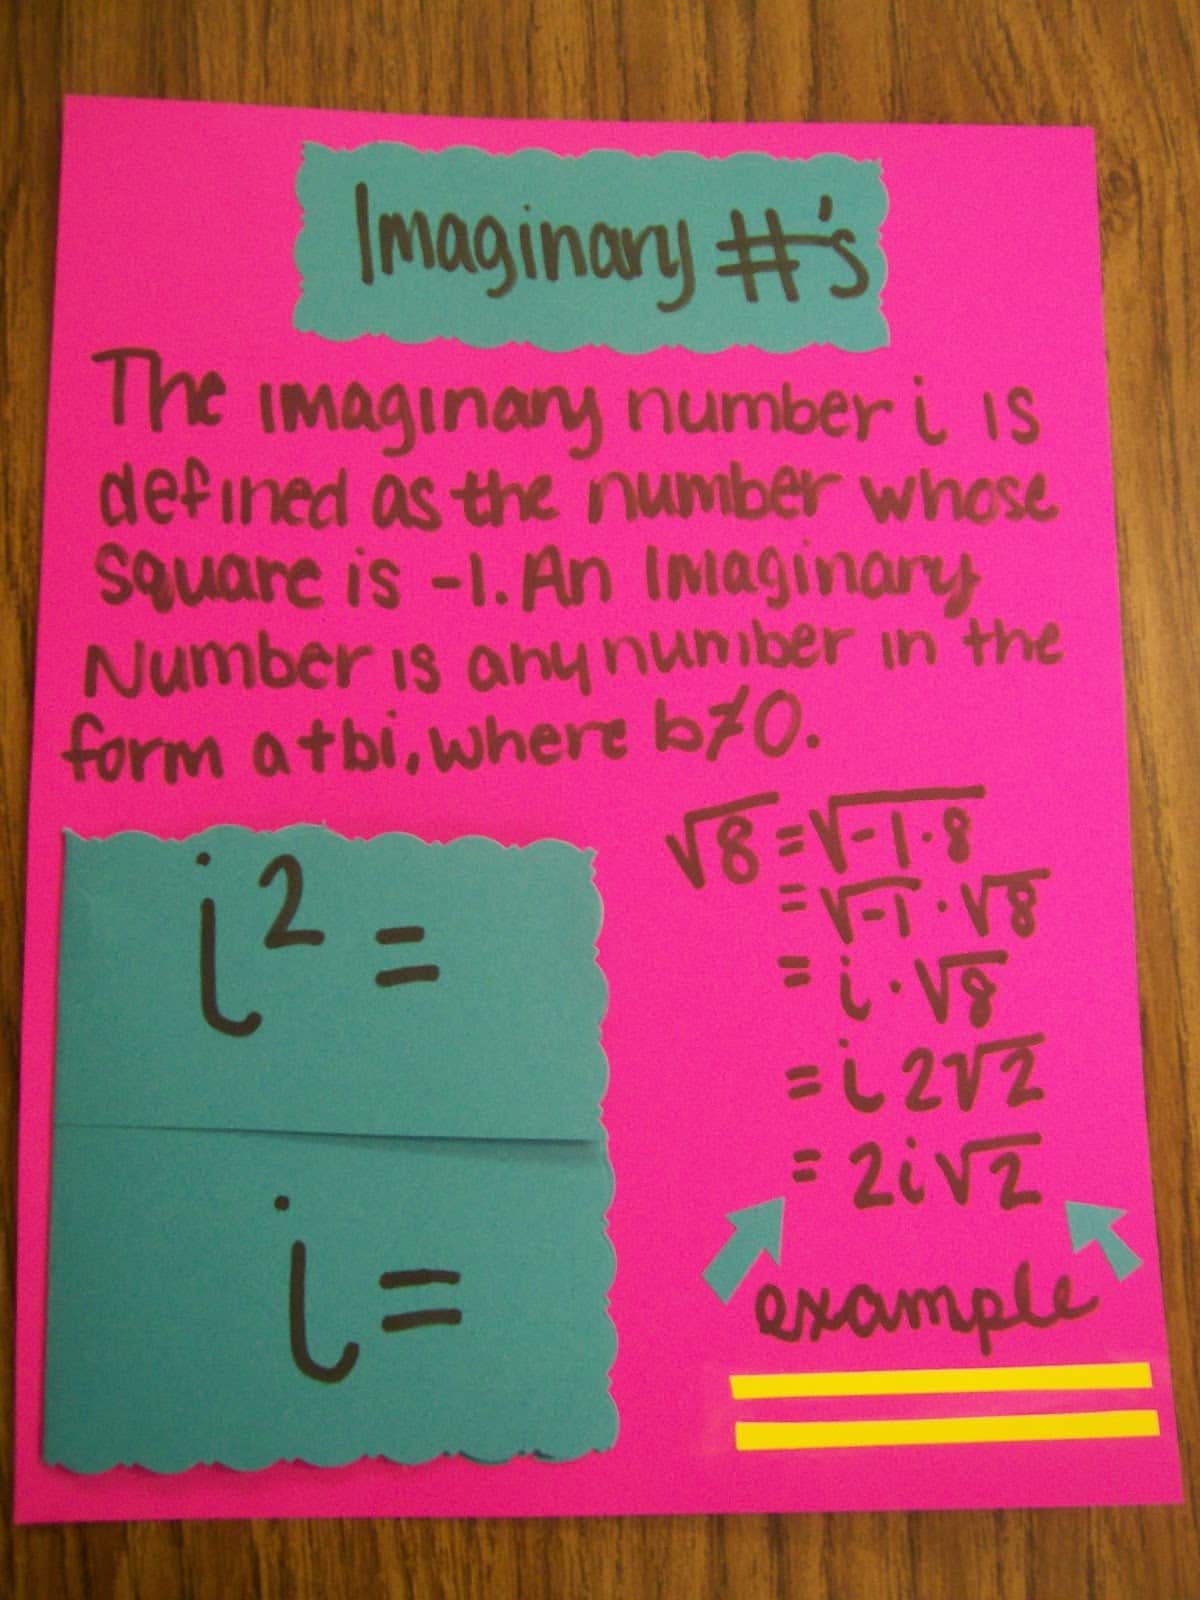 Imaginary #'s
The imaginary number i is
defined as the number whose
square is -1. An Imaginary
Number is any number in the
form a+bi, where b≠0.
i² =
i =
√8 = √-1·8
= √-1 · √8
= i · √8
= i 2√2
= 2i√2
example